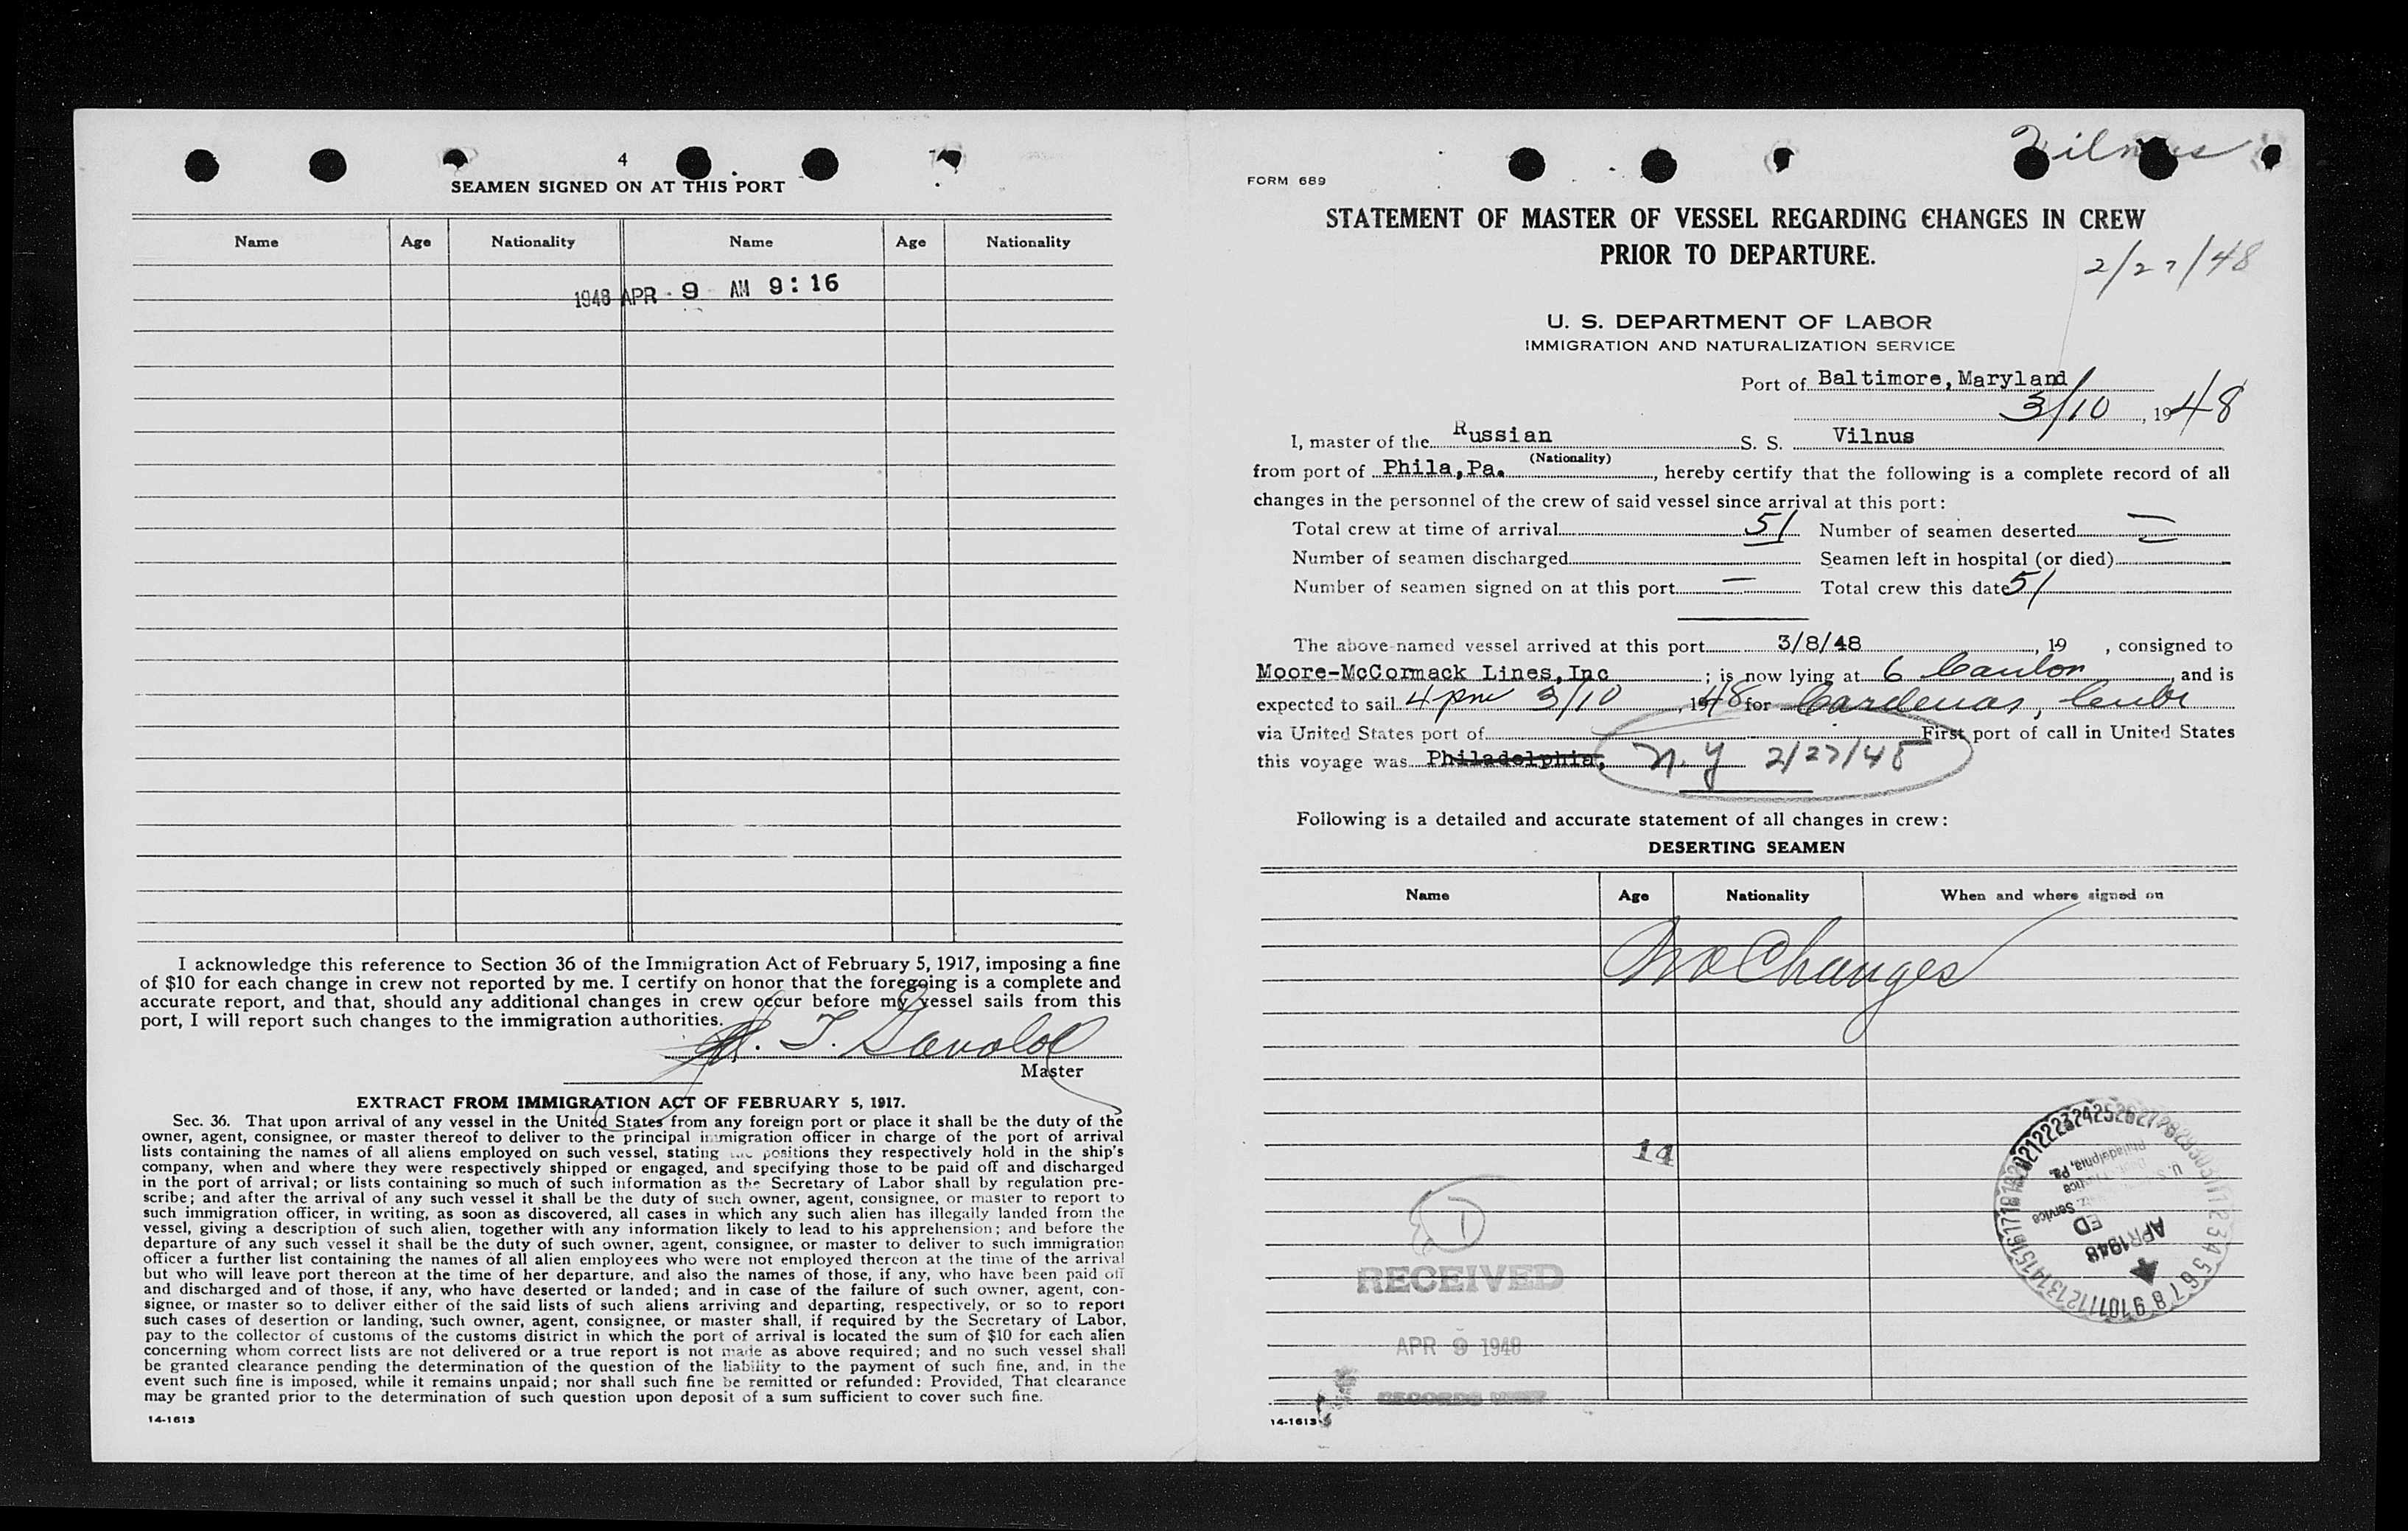 4
SEAMEN SIGNED ON AT THIS PORT
Name Age Nationality Name Age Nationality
1948 APR - 9 AM 9:16
I acknowledge this reference to Section 36 of the Immigration Act of February 5, 1917, imposing a fine
of $10 for each change in crew not reported by me. I certify on honor that the foregoing is a complete and
accurate report, and that, should any additional changes in crew occur before my vessel sails from this
port, I will report such changes to the immigration authorities.
Master
EXTRACT FROM IMMIGRATION ACT OF FEBRUARY 5, 1917.
Sec. 36. That upon arrival of any vessel in the United States from any foreign port or place it shall be the duty of the
owner, agent, consignee, or master thereof to deliver to the principal immigration officer in charge of the port of arrival
lists containing the names of all aliens employed on such vessel, stating the positions they respectively hold in the ship's
company, when and where they were respectively shipped or engaged, and specifying those to be paid off and discharged
in the port of arrival; or lists containing so much of such information as the Secretary of Labor shall by regulation pre-
scribe; and after the arrival of any such vessel it shall be the duty of such owner, agent, consignee, or master to report to
such immigration officer, in writing, as soon as discovered, all cases in which any such alien has illegally landed from the
vessel, giving a description of such alien, together with any information likely to lead to his apprehension; and before the
departure of any such vessel it shall be the duty of such owner, agent, consignee, or master to deliver to such immigration
officer a further list containing the names of all alien employees who were not employed thereon at the time of the arrival
but who will leave port thereon at the time of her departure, and also the names of those, if any, who have been paid off
and discharged and of those, if any, who have deserted or landed; and in case of the failure of such owner, agent, con-
signee, or master so to deliver either of the said lists of such aliens arriving and departing, respectively, or so to report
such cases of desertion or landing, such owner, agent, consignee, or master shall, if required by the Secretary of Labor,
pay to the collector of customs of the customs district in which the port of arrival is located the sum of $10 for each alien
concerning whom correct lists are not delivered or a true report is not made as above required; and no such vessel shall
be granted clearance pending the determination of the question of the liability to the payment of such fine, and, in the
event such fine is imposed, while it remains unpaid; nor shall such fine be remitted or refunded: Provided, That clearance
may be granted prior to the determination of such question upon deposit of a sum sufficient to cover such fine.
14-1613
Vilnus
FORM 689
STATEMENT OF MASTER OF VESSEL REGARDING CHANGES IN CREW
PRIOR TO DEPARTURE.
2/27/48
U. S. DEPARTMENT OF LABOR
IMMIGRATION AND NATURALIZATION SERVICE
Port of Baltimore, Maryland
3/10, 1948
I, master of the Russian S. S. Vilnus
(Nationality)
from port of Phila, Pa. , hereby certify that the following is a complete record of all
changes in the personnel of the crew of said vessel since arrival at this port:
Total crew at time of arrival 51 Number of seamen deserted —
Number of seamen discharged Seamen left in hospital (or died)
Number of seamen signed on at this port — Total crew this date 51
The above-named vessel arrived at this port 3/8/48, 19 , consigned to
Moore-McCormack Lines, Inc ; is now lying at 6 Canton, and is
expected to sail 4 pm 3/10, 1948 for Cardenas, Cuba
via United States port of First port of call in United States
this voyage was Philadelphia, N.Y 2/27/48
Following is a detailed and accurate statement of all changes in crew:
DESERTING SEAMEN
Name Age Nationality When and where signed on
No Changes
14
1
RECEIVED
APR 9 1948
RECORDS UNIT
Philadelphia, Pa.
APR 1948
14-1613